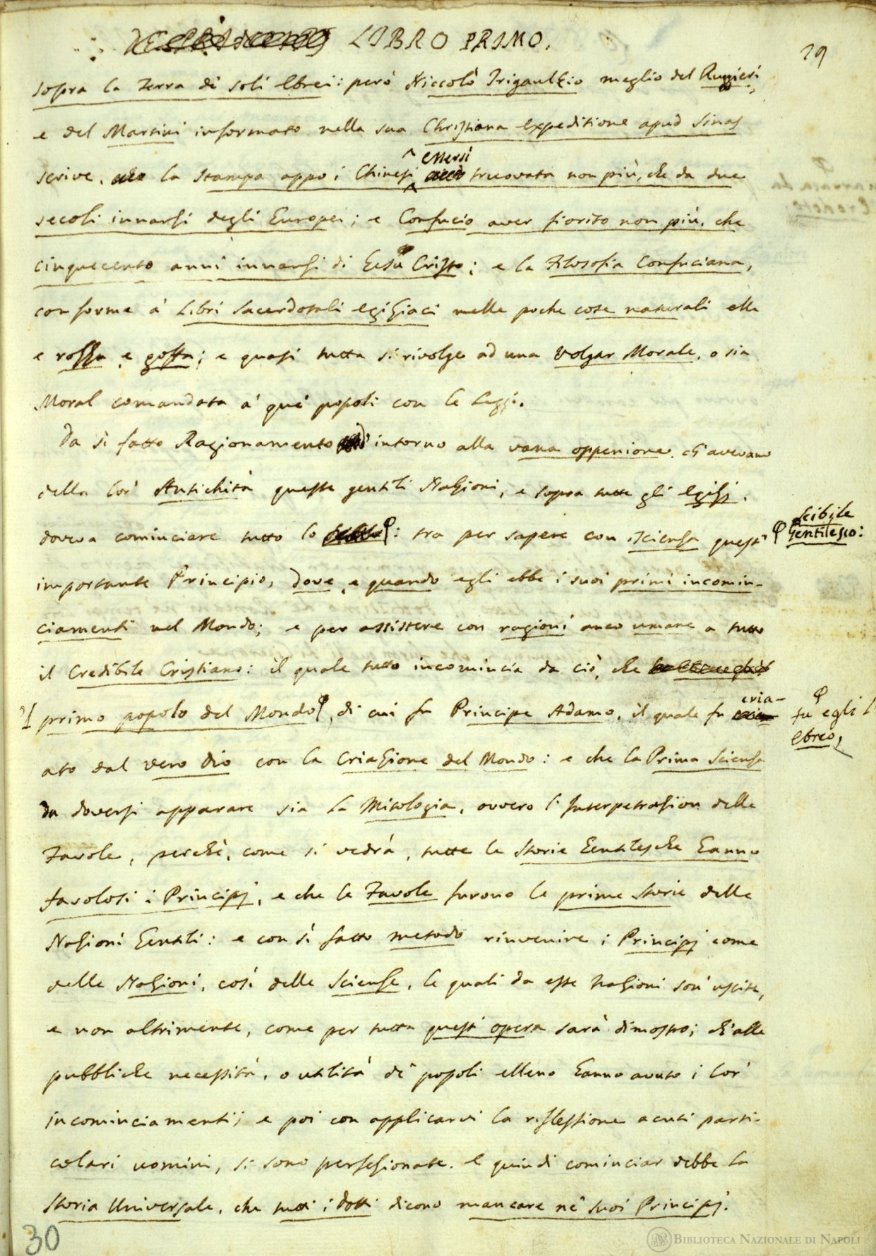 LIBRO PRIMO.
29
sopra la Terra di soli Ebrei: però Niccolò Trigaultzio meglio del Ruggieri,
e del Martini informato nella sua Christiana expeditione apud Sinas
scrive, la Stampa appo i Chinesi essersi truovata non più, che da due
secoli innanzi degli Europei; e Confucio aver fiorito non più, che
cinquecento anni innanzi di Gesu Cristo; e la Filosofia Confuciana,
conforme a' Libri Sacerdotali Egiziaci nelle poche cose naturali ella
e rozza, e goffa; e quasi tutta si rivolge ad una Volgar Morale, o sia
Moral comandata a' que' popoli con le Leggi.
Da sì fatto Ragionamento d'intorno alla vana oppenione, ch'avevano
della lor' Antichità queste gentili Nazioni, e sopra tutte gli Egizj,
doveva cominciare tutto lo φ: tra per sapere con iscienza quest'
φ Scibile
Gentilesco:
importante Principio, dove, e quando egli ebbe i suoi primi incomin-
ciamenti nel Mondo; e per assistere con ragioni anco umane a tutto
il Credibile Cristiano: il quale tutto incomincia da ciò, che
'l primo popolo del Mondo φ, di cui fu Principe Adamo, il quale fu cria-
φ
fu egli l'
Ebreo,
ato dal vero Dio con la Criazione del Mondo: e che la Prima Scienza
da doversi apparare sia la Mitologia, ovvero l'Interpetrazion delle
Favole, perchè, come si vedrà, tutte le Storie Gentilesche hanno
favolosi i Principj, e che le Favole furono le prime Storie delle
Nazioni Gentili: e con sì fatto metodo rinvenire i Principj come
delle Nazioni, così delle Scienze, le quali da esse Nazioni son' uscite,
e non altrimente, come per tutta quest' opera sarà dimostro; ch'alle
pubbliche necessità, o utilità de' popoli elleno hanno avuto i lor'
incominciamenti; e poi con applicarvi la riflessione acuti parti-
colari uomini, si sono perfezionate. E quindi cominciar debbe la
Storia Universale, che tutti i dotti dicono mancare ne' suoi Principj.
30
BIBLIOTECA NAZIONALE DI NAPOLI